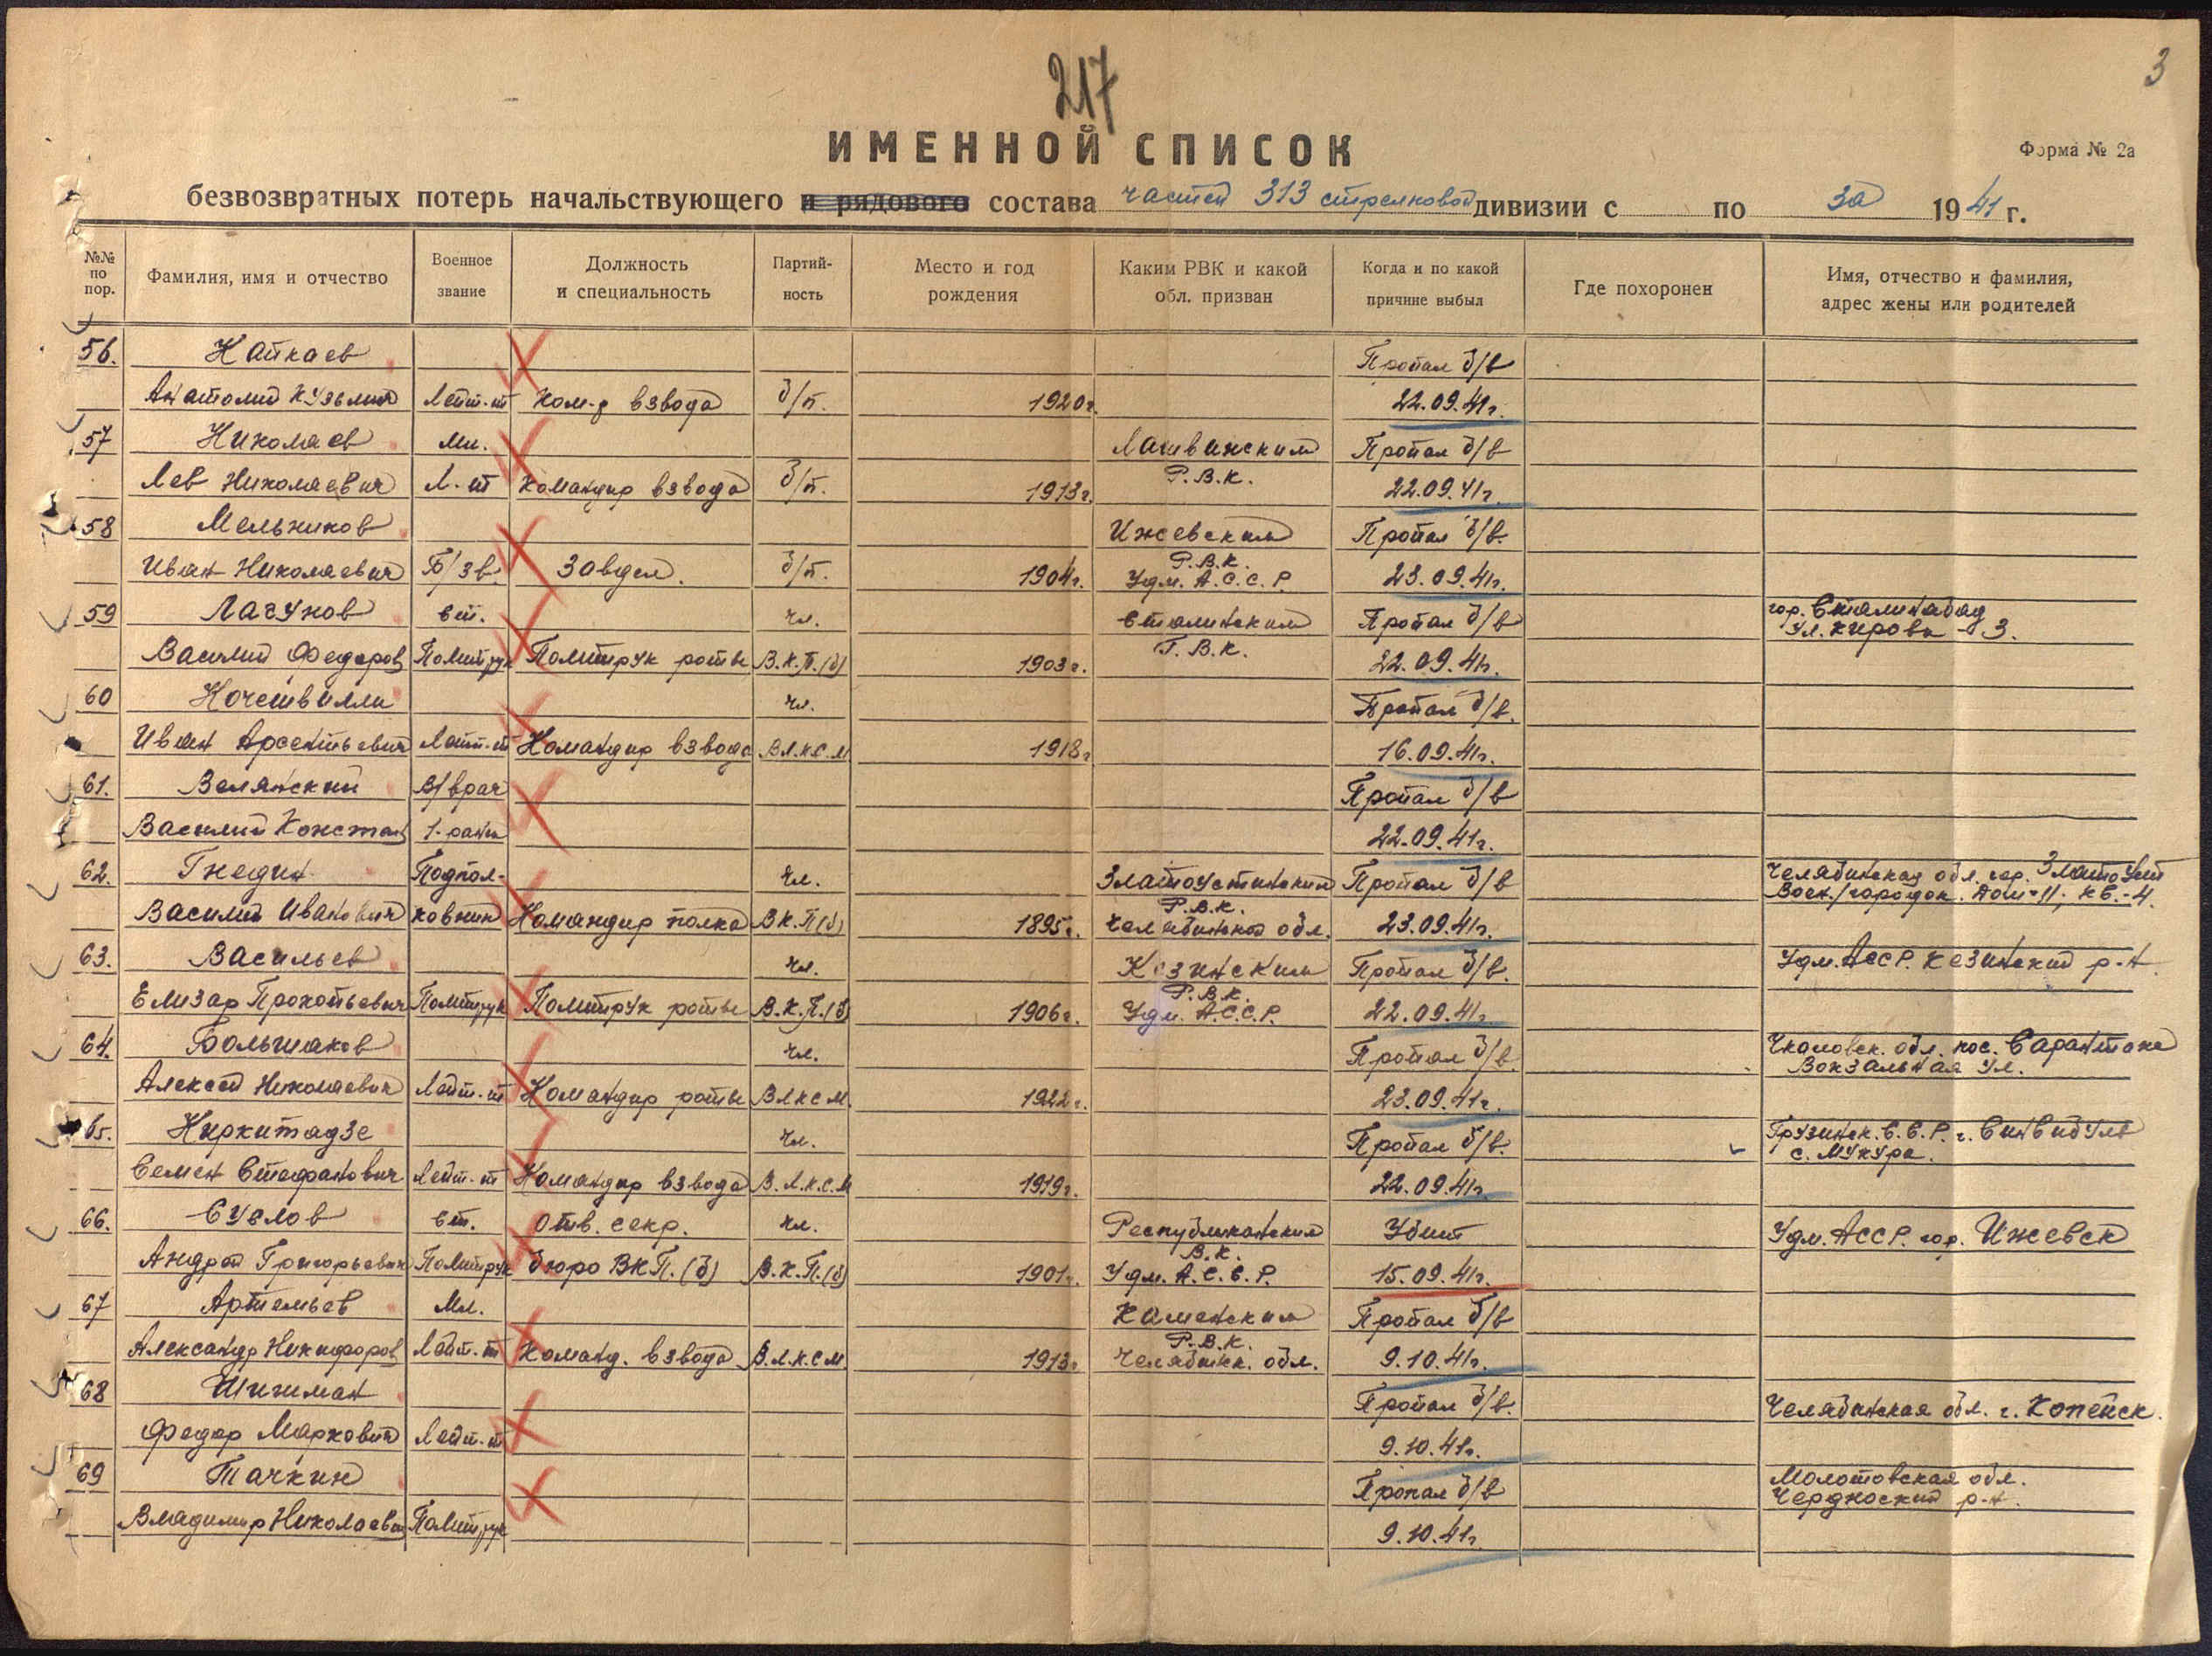 217
3
ИМЕННОЙ СПИСОК
Форма № 2а
безвозвратных потерь начальствующего и рядового состава частей 313 стрелковой дивизии с по за 1941 г.
№№ по пор.
Фамилия, имя и отчество
Военное звание
Должность и специальность
Партийность
Место и год рождения
Каким РВК и какой обл. призван
Когда и по какой причине выбыл
Где похоронен
Имя, отчество и фамилия, адрес жены или родителей
56. Пропал б/в
Анатолий Кузьмич Лейт-нт Ком-р взвода б/п. 1920г. 22.09.41г.
57 Николаев Мл. Пропал б/в
Лев Николаевич Л-нт Командир взвода б/п. 1913г. Р.В.К. 22.09.41г.
58 Мельников Ижевским Пропал б/в.
Иван Николаевич Б/зв. Завдел. б/п. 1904г. Р.В.К. Удм. А.С.С.Р. 23.09.41г.
59 Лагунов ст. чл. Сталинским Пропал б/в гор. Сталинабад
Ул. Кирова - 3.
Василий Федоров Политрук Политрук роты В.К.П.(б) 1903г. Г.В.К. 22.09.41г.
60 чл. Пропал б/в.
Иван Арсентьевич Лейт-нт Командир взвода ВЛ.К.С.М 1918г 16.09.41г.
61. Велянский В/врач Пропал б/в
Василий Констан 1-ранга 22.09.41г.
62. Гнедин Подпол- чл. Златоустинским Пропал б/в Челябинская обл. гор. Златоуст
Воен./городок. Дом-11, кв.-4.
Василий Иванович ковник Командир полка ВК.П(б) 1895г. Р.В.К. Челябинской обл. 23.09.41г.
63. Васильев чл. Кезинским Пропал б/в. Удм. АССР. Кезинский р-н.
Елизар Прокопьевич Политрук Политрук роты В.К.П.(б) 1906г. Р.В.К. Удм. А.С.С.Р. 22.09.41г.
64. Большаков чл. Пропал б/в. Чкаловск. обл. пос. Сарактана
Вокзальная Ул.
Алексей Николаевич Лейт-нт Командир роты ВЛКСМ. 1922г. 23.09.41г.
65. Киркитадзе чл. Пропал б/в. Грузинск. С.С.Р.
с. Мукура.
Семен Стефанович Лейт-нт Командир взвода В.Л.К.С.М 1919г. 22.09.41г.
66. Суслов ст. Отв. секр. чл. Республиканским Убит Удм. АССР. гор. Ижевск
Андрей Григорьевич Политрук бюро ВКП.(б) В.К.П.(б) 1901г. В.К. Удм. А.С.С.Р. 15.09.41г.
67 Артемьев Мл. Каменским Пропал б/в
Александр Никифоров Лейт-нт Команд. взвода В.Л.К.С.М 1913г Р.В.К. Челябинск. обл. 9.10.41г.
68 Шигиман Пропал б/в. Челябинская обл. г. Копейск.
Федор Маркович Лейт-нт 9.10.41г.
69 Тачкин Пропал б/в Молотовская обл.
р-н.
Владимир Николаевич Политрук 9.10.41г.